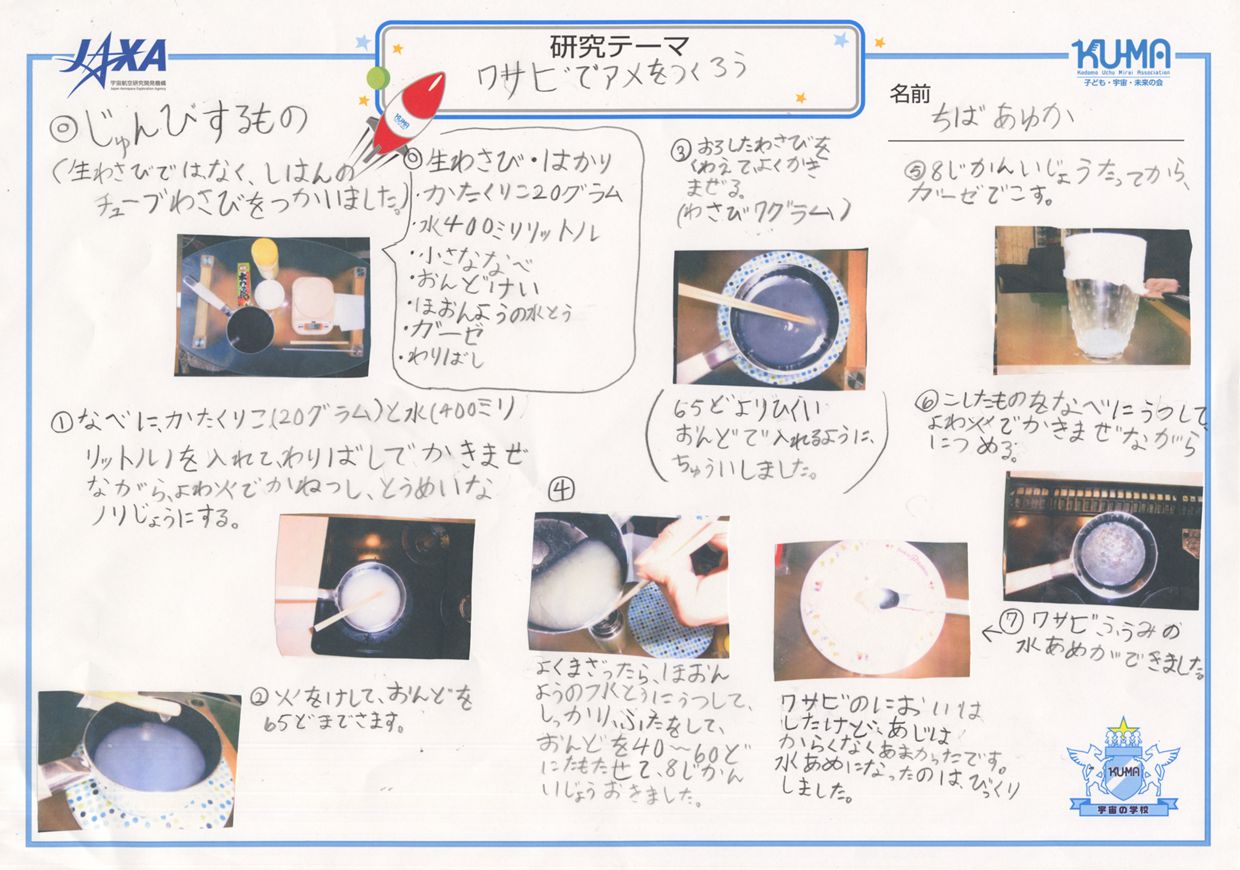 JAXA
宇宙航空研究開発機構
Japan Aerospace Exploration Agency
研究テーマ
ワサビでアメをつくろう
KUMA
Kodomo Uchu Mirai Association
子ども・宇宙・未来の会
名前
ちばあゆか
KUMA
◎じゅんびするもの
(生わさびではなく、しはんの
チューブわさびをつかいました。)
◎生わさび・はかり
・かたくりこ20グラム
・水400ミリリットル
・小さななべ
・おんどけい
・ほおんようの水とう
・ガーゼ
・わりばし
①なべに、かたくりこ(20グラム)と水(400ミリ
リットル)を入れて、わりばしでかきまぜ
ながら、よわ火でかねつし、とうめいな
ノリじょうにする。
②火をけして、おんどを
65どまでさます。
③おろしたわさびを
くわえて、よくかき
まぜる。
(わさび7グラム)
(65どよりひくい
おんどで入れるように、
ちゅういしました。)
④
よくまざったら、ほおん
ようの水とうにうつして、
しっかり、ふたをして、
おんどを40～60ど
にたもたせて、8じかん
いじょうおきました。
⑤8じかんいじょうたってから、
ガーゼでこす。
⑥こしたものをなべにうつして、
よわ火でかきまぜながら
につめる。
←⑦ワサビふうみの
水あめができました。
ワサビのにおいは
したけど、あじは
からくなくあまかったです。
水あめになったのは、びっくり
しました。
KUMA
宇宙の学校